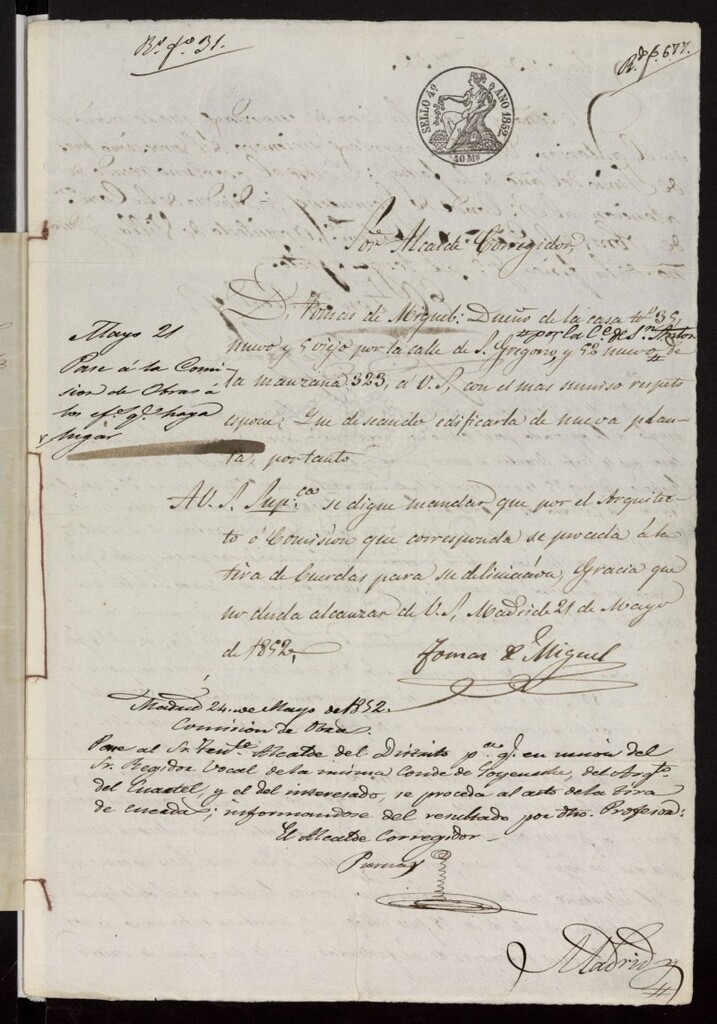 Rº fº 31.
Rdo f. 677.
SELLO 4º AÑO 1852.
40 Ms
Sor. Alcalde Corregidor,
D. Tomas de Miguel: Dueño de la casa nº 35,
#por la Ce. de Sn. Anton
nuevo y 5 viejo por la calle de S. Gregorio, y 52 nuevo # de
la manzana 323, á V. S, con el mas sumiso respeto
espone; Que deseando edificarla de nueva plan-
ta; por tanto
Mayo 21
Pase á la Comi-
sion de Obras á
los efs. qe. haya
lugar
A V. S. Supca. se digne mandar que por el Arquitec-
to ó Comisión que corresponda se proceda á la
tira de Cuerdas para su deliniación, Gracia que
no duda alcanzar de V. S, Madrid 21 de Mayo
de 1852,
Tomas de Miguel
Madrid 24 de Mayo de 1852.
Comision de Obras.
Pase al Sr. Tente. Alcalde del Distrito pa. q. en union del
Sr. Regidor Vocal de la misma Conde de Goyeneche, del Arqto.
del Cuartel, y el del interesado, se proceda al acto de la tira
de cuerda; informandose del resultado por dho. Profesor:
El Alcalde Corregidor
Madrid